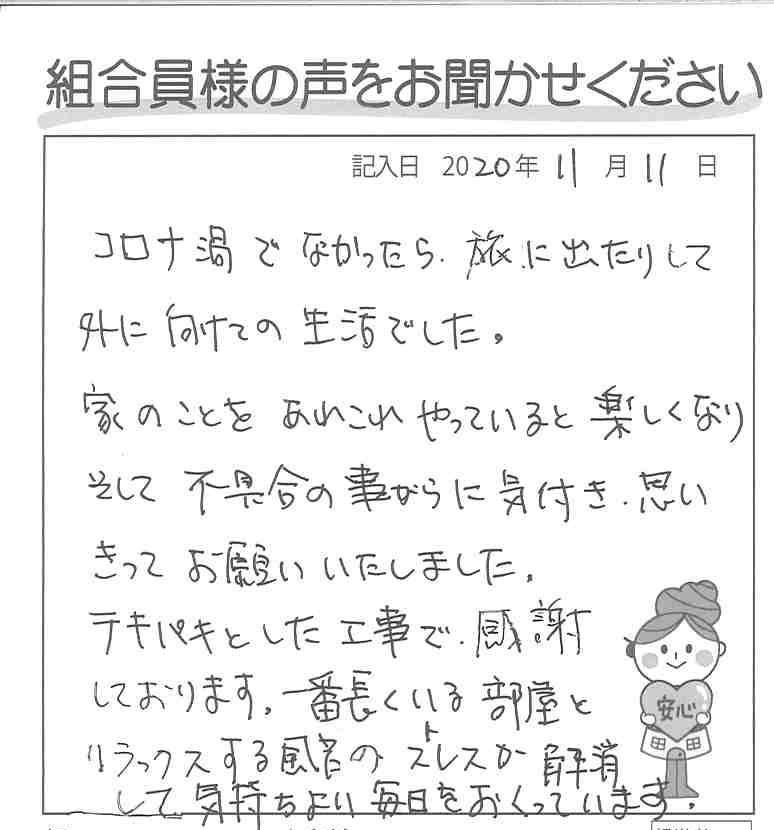 組合員様の声をお聞かせください
記入日 2020年 11月 11日
コロナ渦でなかったら、旅に出たりして
外に向けての生活でした。
家のことをあれこれやっていると楽しくなり
そして不具合の事がらに気付き、思い
きってお願いいたしました。
テキパキとした工事で、感謝
しております。一番長くいる部屋と
リラックスする風呂のストレスが解消
して気持ちよい毎日をおくっています。
安心